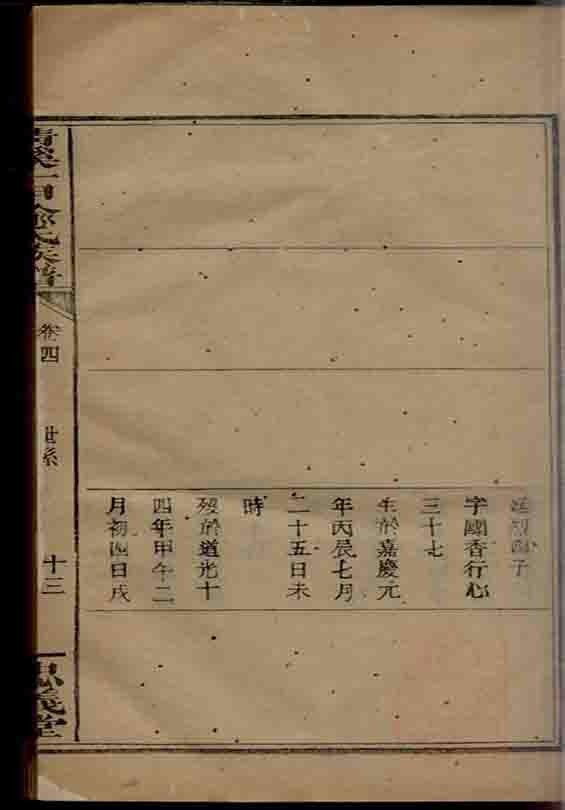 字國香行心
三十七
生於嘉慶元
年丙辰七月
二十五日未
時
歿於道光十
四年甲午二
月初四日戌
氏族譜
卷四
世系
十三
忠義堂